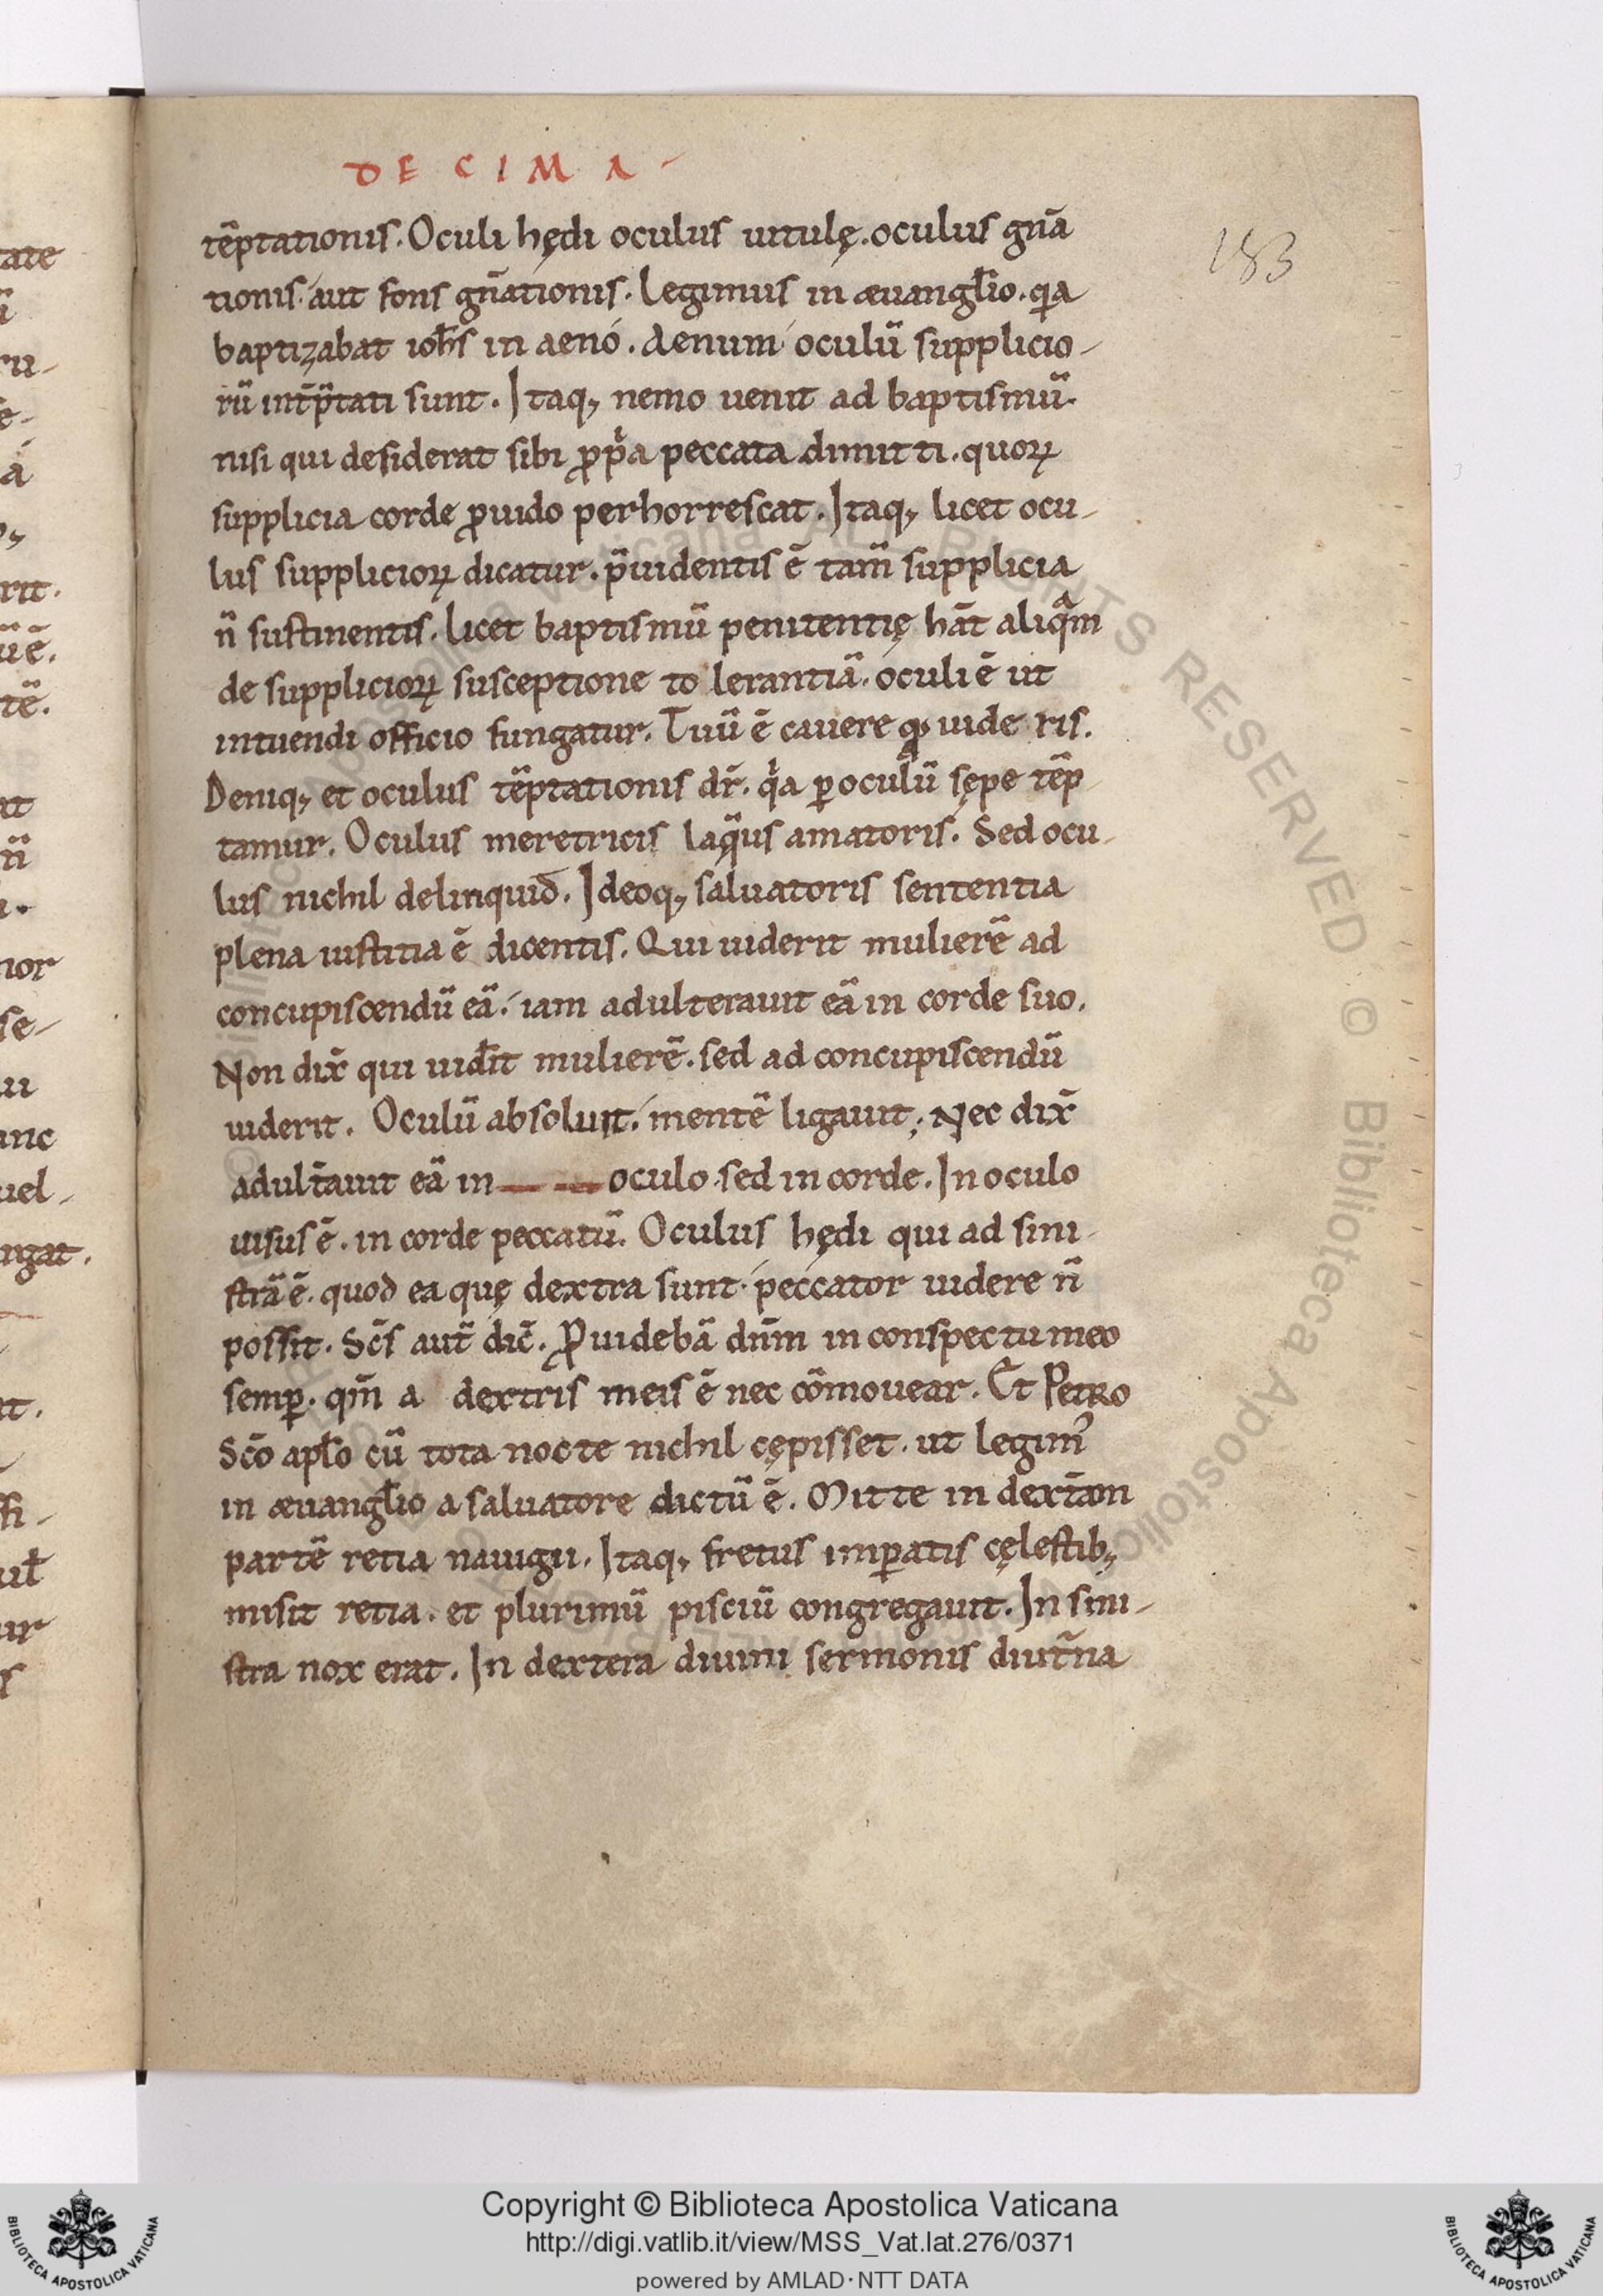 DECIMA
te͂ptationis. Oculi hędi oculus uitulę. oculus gn͂a
tionis. aut fons gn͂ationis. Legimus in æuangl̄io. qia
baptizabat ioh̄s in aenó. Aenum oculū supplicio-
rū int̄p̄tati sunt. Itaq; nemo uenit ad baptismū.
nisi qui desiderat sibi ꝓpͥa peccata dimitti. quoꝝ
supplicia corde ꝓuido perhorrescat. Itaq; licet ocu-
lus supplicioꝝ dicatur. p̄uidentis ē tam̄ supplicia
n̄ sustinentis. Licet baptismū penitentię hāt aliqᵃm
de supplicioꝝ susceptione to lerantiā. oculi ē ut
intuendi officio fungatur. Tuū ē cauere qᵈ uide ris.
Deniq; et oculus tēptationis dr̄. qͥa ꝑ oculū sępe tēp
tamur. Oculus meretricis laq̄us amatoris. Sed ocu-
lus nichil delinquid. Ideoq; saluatoris sententia
plena iustitia ē dicentis. Qui uiderit mulierē ad
concupiscendū eā. iam adulterauit eā in corde suo.
Non dix̄ qui uid̄it mulierē. sed ad concupiscendū
uiderit. Oculū absoluit. mentē ligauit; Nec dix̄
adult̄auit eā in oculo. sed in corde. In oculo
uisus ē. in corde peccatū. Oculus hędi qui ad sini-
strā ē. quod ea quę dextra sunt. peccator uidere n̄
possit. Sc̄s aut̄ dic̄. Ꝓuidebā dn̄m in conspectu meo
semꝑ. qm̄ a dextris meis ē nec cōmouear. Et Petro
Sc̄o apl̄o cū tota nocte nichil cępisset. ut legimꝰ
in æuangl̄io a saluatore dictū ē. Mitte in dext̄am
partē retia nauigii. Itaq; fretus imꝑatis cęlestib;
misit retia. et plurimū pisciū congregauit. In sini-
stra nox erat. In dextera diuini sermonis diut̄na
183
Copyright © Biblioteca Apostolica Vaticana
http://digi.vatlib.it/view/MSS_Vat.lat.276/0371
powered by AMLAD·NTT DATA
BIBLIOTECA APOSTOLICA VATICANA
BIBLIOTECA APOSTOLICA VATICANA